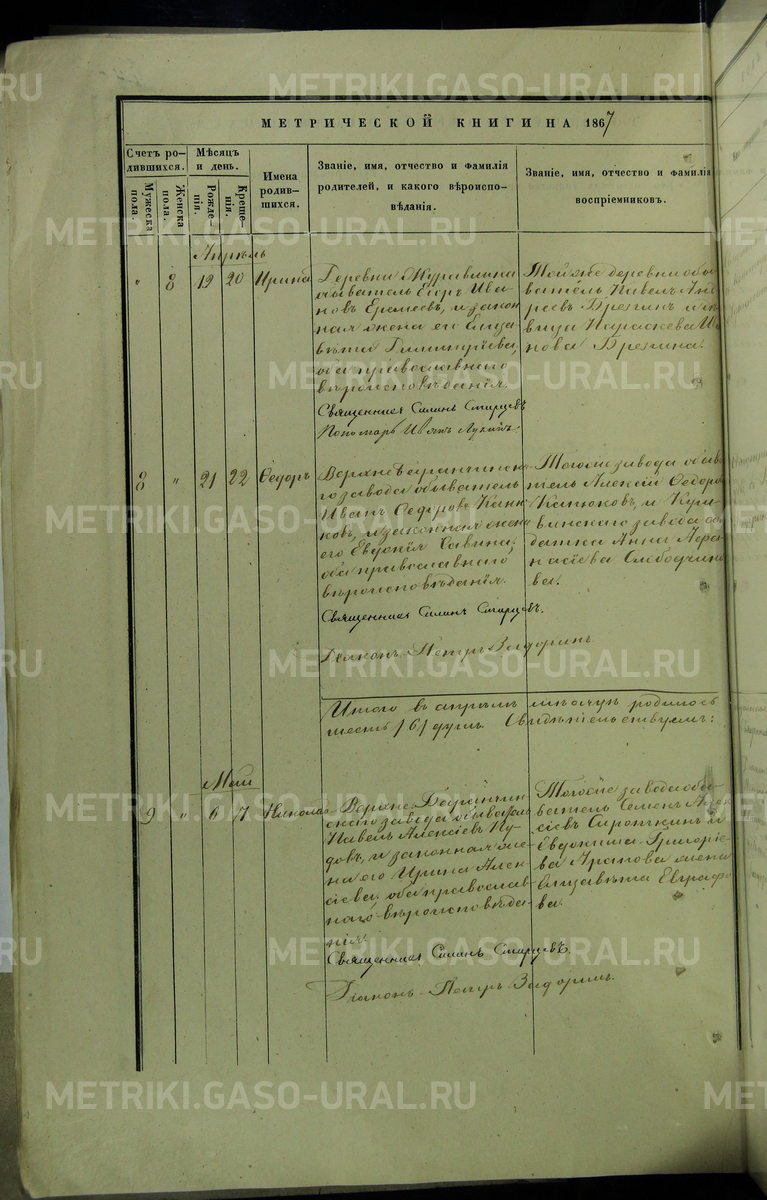 МЕТРИЧЕСКОЙ КНИГИ НА 1867
Счетъ ро-
дившихся.
Мужеска
пола.
Женска
пола.
Мѣсяцъ
и день.
Рожде-
нія.
Креще-
нія.
Имена
родив-
шихся.
Званіе, имя, отчество и фамилія
родителей, и какого вѣроиспо-
вѣданія.
Званіе, имя, отчество и фамилія
воспріемниковъ.
Апрѣль
" 8 19 20 Ирина
Деревни Журавлика
обыватель Егоръ Ива
новъ Еремеевъ, и закон
ная жена его Елиза
вѣта Димитріева,
оба православнаго
вѣроисповѣданія.
Священникъ Силинъ Старцевъ
Пономарь Иванъ
Той же деревни обы
ватель Павелъ Анд
реевъ и дѣ
вица Параскева Ив
нова
8 " 21 22 Ѳедоръ
Верхне
го завода обыватель
Иванъ Ѳедоровъ
ковъ, и законная жена
его Евдокія Савина,
оба православнаго
вѣроисповѣданія.
Священникъ Силинъ Старцевъ.
Діаконъ Петръ Задоринъ
Тогоже завода обыва
тель Алексій Ѳедоро
и Куш
винскаго завода об
Анна Афа
насіева Слободчико
ва.
Итого въ апрѣлѣ мѣсяцѣ родилось
шесть /6/ душъ. Свидѣтельствуемъ:
Май
9 " 6 7 Николай
Верхне
скаго завода обыватель
Павелъ Алексіевъ Ку
довъ, и законная же
на его Ирина Алек
сіева, оба православ
наго вѣроисповѣда-
нія.
Священникъ Силинъ Старцевъ.
Діаконъ Петръ Задоринъ.
Тогоже завода обы
ватель Семенъ Алек
сіевъ Сиропкинъ и
Евдокима Григоріе
ва Арапова жена
Елизавѣта Евграфо
ва.
METRIKI.GASO-URAL.RU